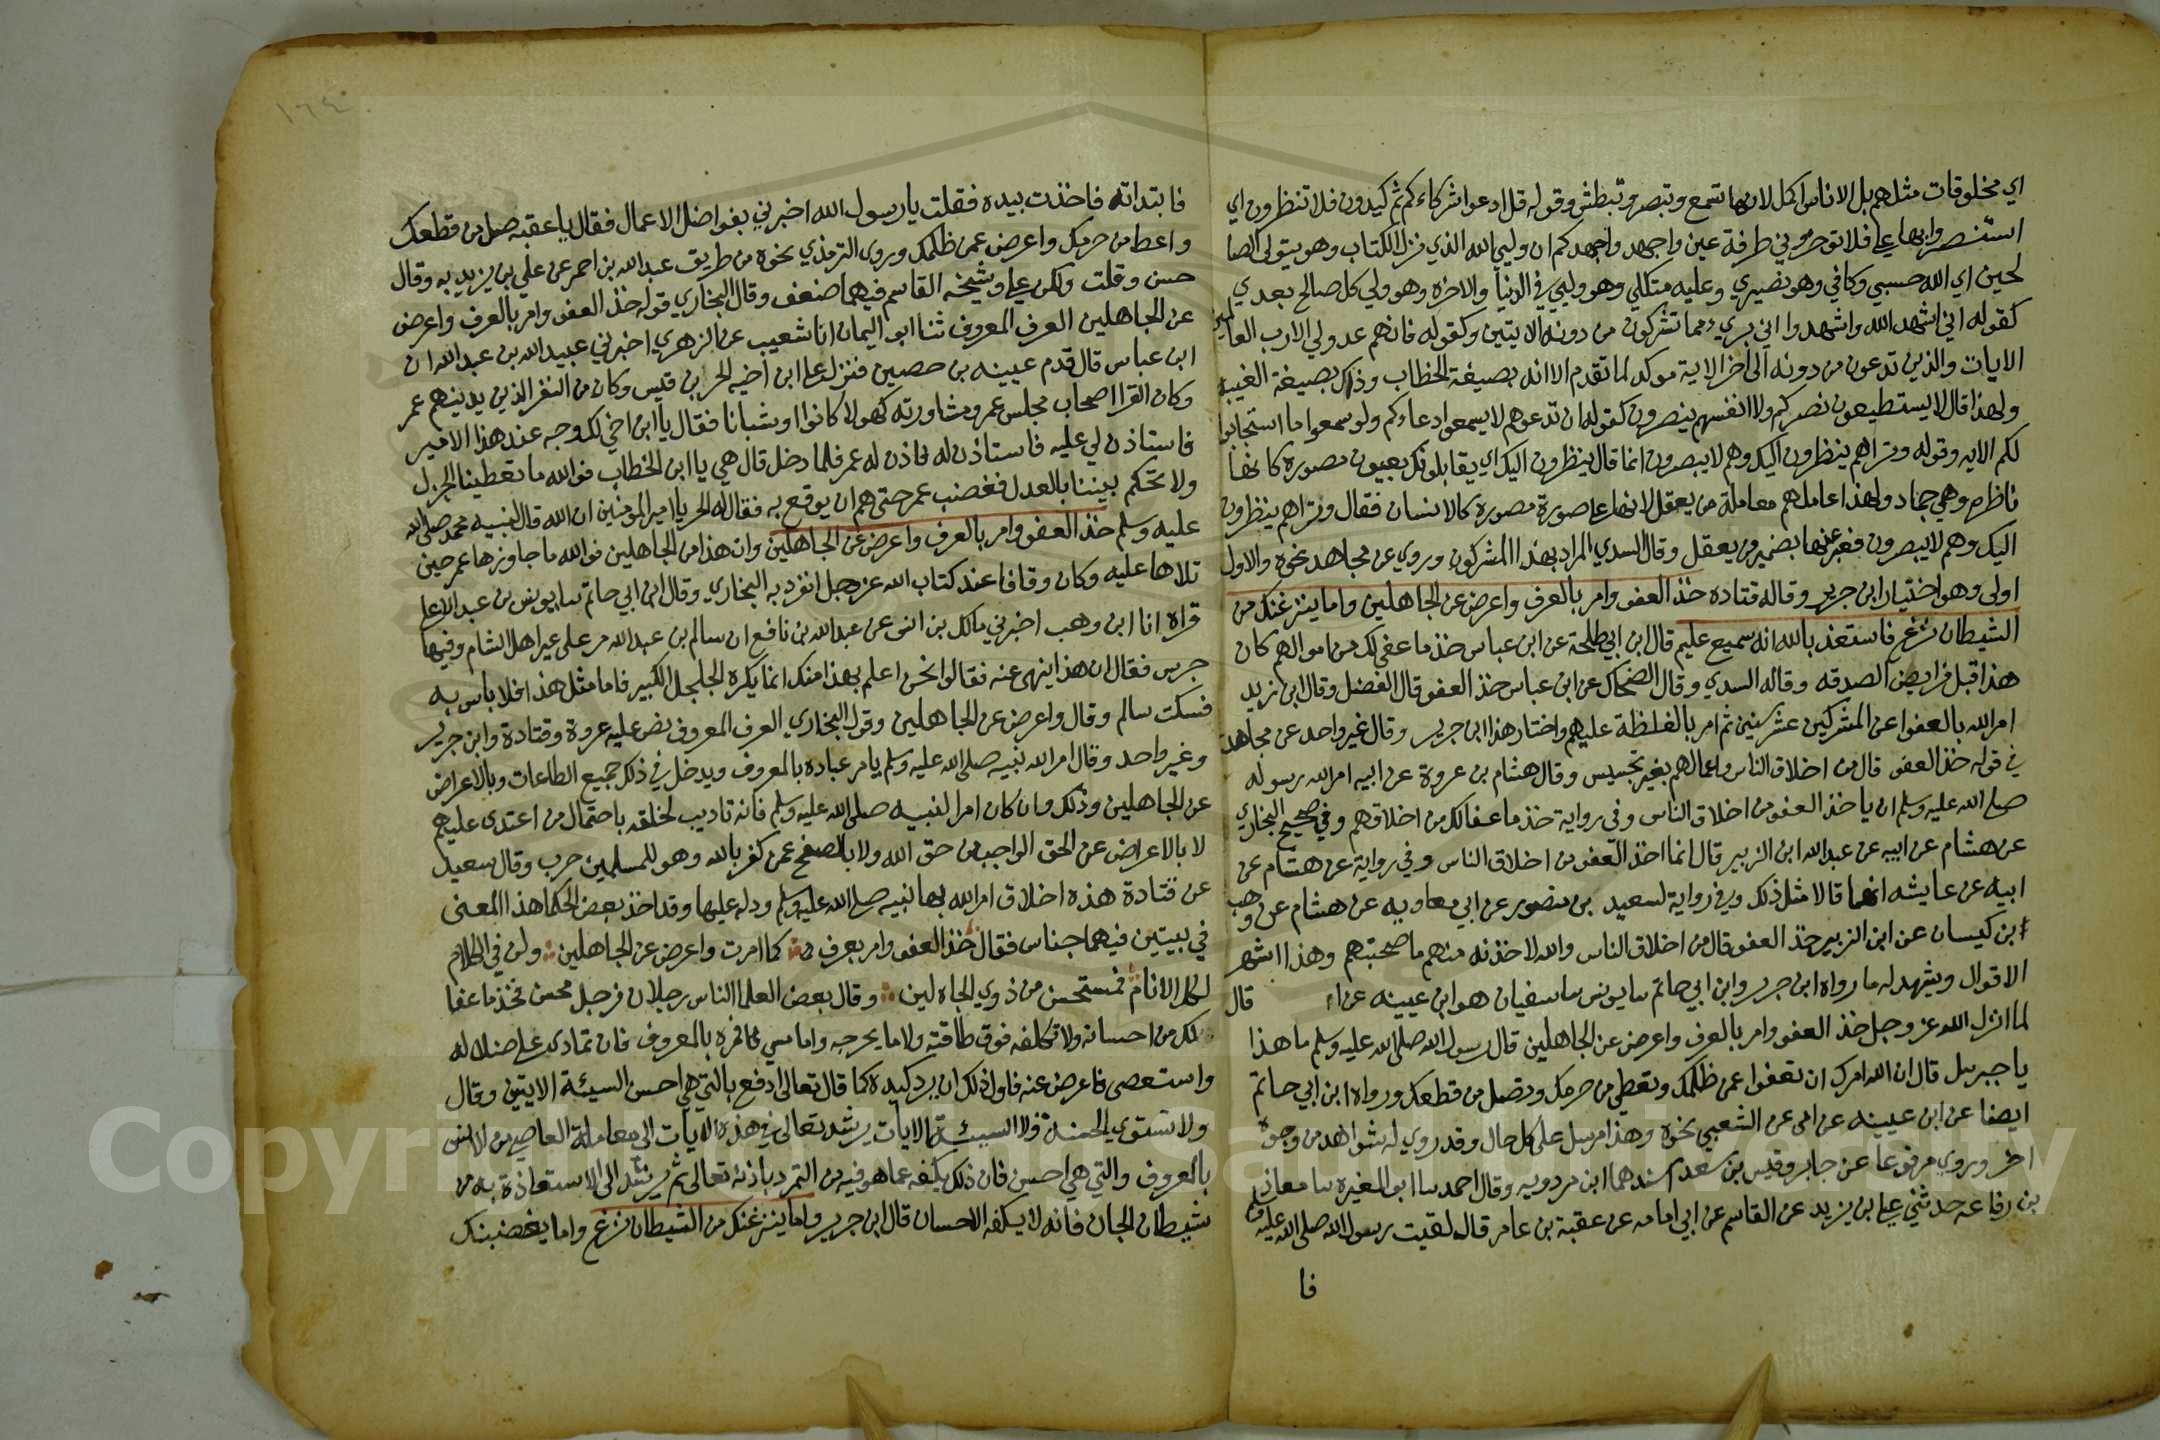 اي مخلوقات مثلهم بل الاناس اكمل لانها تسمع وتبصر وتبطش وقوله قل ادعوا شركاءكم ثم كيدون فلا تنظرون اي
استنصروا بها علي فلا توخروني طرفة عين واجهدوا جهدكم ان وليي الله الذي نزل الكتاب وهو يتولى الصا
لحين اي الله حسبي وكافي وهو نصيري وعليه متكلي وهو وليي في الدنيا والاخره وهو ولي كل صالح بعدي
كقوله اني اشهد الله واشهدوا اني بريء مما تشركون من دونه الايتين وكقوله فانهم عدو لي الا رب العالمين
الايات والذين تدعون من دونه الى اخر الاية موكد لما تقدم الا انه بصيغة الخطاب وذلك بصيغة الغيبه
ولهذا قال لا يستطيعون نصركم ولا انفسهم ينصرون كقوله ان تدعوهم لا يسمعوا دعاءكم ولو سمعوا ما استجابوا
لكم الايه وقوله وتراهم ينظرون اليك وهم لا يبصرون انما قال ينظرون اليك اي يقابلونك بعيون مصوره كانها
ناظره وهي جماد ولهذا عاملهم معاملة من يعقل لانها على صورة مصورة كالانسان فقال وتراهم ينظرون
اليك وهم لا يبصرون فعبر عنها بضمير من يعقل وقال السدي المراد بهذا المشركون وروي عن مجاهد نحوه والاول
اولى وهو اختيار ابن جرير وقاله قتاده خذ العفو وامر بالعرف واعرض عن الجاهلين واما ينزغنك من
الشيطان نزغ فاستعذ بالله انه سميع عليم قال ابن ابي طلحة عن ابن عباس خذ ما عفي لك من اموالهم كان
هذا قبل فرايض الصدقه وقاله السدي وقال الضحاك عن ابن عباس خذ العفو قال الفضل وقال ابن زيد
امر الله بالعفو عن المشركين عشر سنين ثم امر بالغلظة عليهم واختار هذا ابن جرير وقال غير واحد عن مجاهد
في قوله خذ العفو قال من اخلاق الناس واعمالهم بغير تجسيس وقال هشام بن عروة عن ابيه امر الله رسوله
صلى الله عليه وسلم ان ياخذ العفو من اخلاق الناس وفي رواية خذ ما عفا لك من اخلاقهم وفي صحيح البخاري
عن هشام عن ابيه عن عبد الله ابن الزبير قال انما اخذ العفو من اخلاق الناس وفي رواية عن هشام عن
ابيه عن عايشه انهما قالا مثل ذلك وفي رواية لسعيد بن منصور عن ابي معاويه عن هشام عن وهب
ابن كيسان عن ابن الزبير خذ العفو قال من اخلاق الناس والله لاخذنه منهم ما صحبتهم وهذا اشهر
الاقوال ويشهد له ما رواه ابن جرير وابن ابي حاتم سا يونس سا سفيان هو ابن عيينه عن قال
لما انزل الله عز وجل خذ العفو وامر بالعرف واعرض عن الجاهلين قال رسول الله صلى الله عليه وسلم ما هذا
يا جبريل قال ان الله امرك ان تعفوا عمن ظلمك وتعطي من حرمك وتصل من قطعك ورواه ابن ابي حاتم
ايضا عن ابن عيينه عن امى عن الشعبي نحوه وهذا مرسل على كل حال وقد روي له شواهد من وجوه
اخر وروي مرفوعا عن جابر وقيس بن سعد اسندهما ابن مردويه وقال احمد سا ابو المغيره سا معاذ
بن رفاعه حدثني علي بن يزيد عن القاسم عن ابي امامه عن عقبة بن عامر قال لقيت رسول الله صلى الله عليه وسلم
فا
١٦٤
فابتداته فاخذت بيده فقلت يا رسول الله اخبرني بفواضل الاعمال فقال يا عقبه صل من قطعك
واعط من حرمك واعرض عمن ظلمك وروى الترمذي نحوه من طريق عبد الله بن احمر عن علي بن يزيد به وقال
حسن وقلت ولكن علي وشيخه القاسم فيهما ضعف وقال البخاري قوله خذ العفو وامر بالعرف واعرض
عن الجاهلين العرف المعروف ثنا ابو اليمان انا شعيب عن الزهري اخبرني عبيد الله بن عبد الله ان
ابن عباس قال قدم عيينه بن حصين فنزل على ابن اخيه الحر بن قيس وكان من النفر الذين يدنيهم عمر
وكان القرا اصحاب مجلس عمر ومشاورته كهولا كانوا او شبانا فقال يا ابن اخي لك وجه عند هذا الامير
فاستاذن لي عليه فاستاذن له فاذن له عمر فلما دخل قال هي يا ابن الخطاب فوالله ما تعطينا الجزل
ولا تحكم بيننا بالعدل فغضب عمر حتى هم ان يوقع به فقال له الحر يا امير المومنين ان الله قال لنبيه محمد صلى الله
عليه وسلم خذ العفو وامر بالعرف واعرض عن الجاهلين وان هذا من الجاهلين فوالله ما جاوزها عمر حين
تلاها عليه وكان وقافا عند كتاب الله عز وجل انفرد به البخاري وقال ابن ابي حاتم سا يونس بن عبد الاعلى
قراه انا ابن وهب اخبرني مالك بن انس عن عبد الله بن نافع ان سالم بن عبد الله مر على عير اهل الشام وفيها
جرس فقال ان هذا ينهى عنه فقالوا نحن اعلم بهذا منك انما يكره الجلجل الكبير فاما مثل هذا فلا باس به
فسكت سالم وقال واعرض عن الجاهلين وقول البخاري العرف المعروف نص عليه عروة وقتادة وابن جرير
وغير واحد وقال امر الله نبيه صلى الله عليه وسلم يامر عباده بالمعروف ويدخل في ذلك جميع الطاعات وبالاعراض
عن الجاهلين وذلك وان كان امرا لنبيه صلى الله عليه وسلم فانه تاديب لخلقه باحتمال من اعتدى عليهم
لا بالاعراض عن الحق الواجب من حق الله ولا بالصفح عمن كفر بالله وهو للمسلمين حرب وقال سعيد
عن قتادة هذه اخلاق امر الله بها نبيه صلى الله عليه وسلم ودله عليها وقد اخذ بعض الحكما هذا المعنى
في بيتين فيهما جناس فقال خذ العفو وامر بعرف كما امرت واعرض عن الجاهلين ولن في الكلام
لكل الانام فمستحسن من ذوي الجاه لين وقال بعض العلما الناس رجلان فرجل محسن فخذ ما عفا
لك من احسانه ولا تكلفه فوق طاقته ولا ما يحرجه واما مسي فامره بالمعروف فان تمادى على ضلاله
واستعصى فاعرض عنه فاولذلك ان يرد كيده كما قال تعالى ادفع بالتي هي احسن السيئة الايتين وقال
ولا تستوي الحسنة ولا السيئة الايات يرشد تعالى في هذه الايات الى معاملة العاصي من الانس
بالمعروف والتي هي احسن فان ذلك يكفه عما هو فيه من التمرد باذنه تعالى ثم يرشد الى الاستعاذة به من
شيطان الجان فانه لا يكفه الاحسان قال ابن جرير واما ينزغنك من الشيطان نزغ واما يغضبنك
Copyright © King Saud University